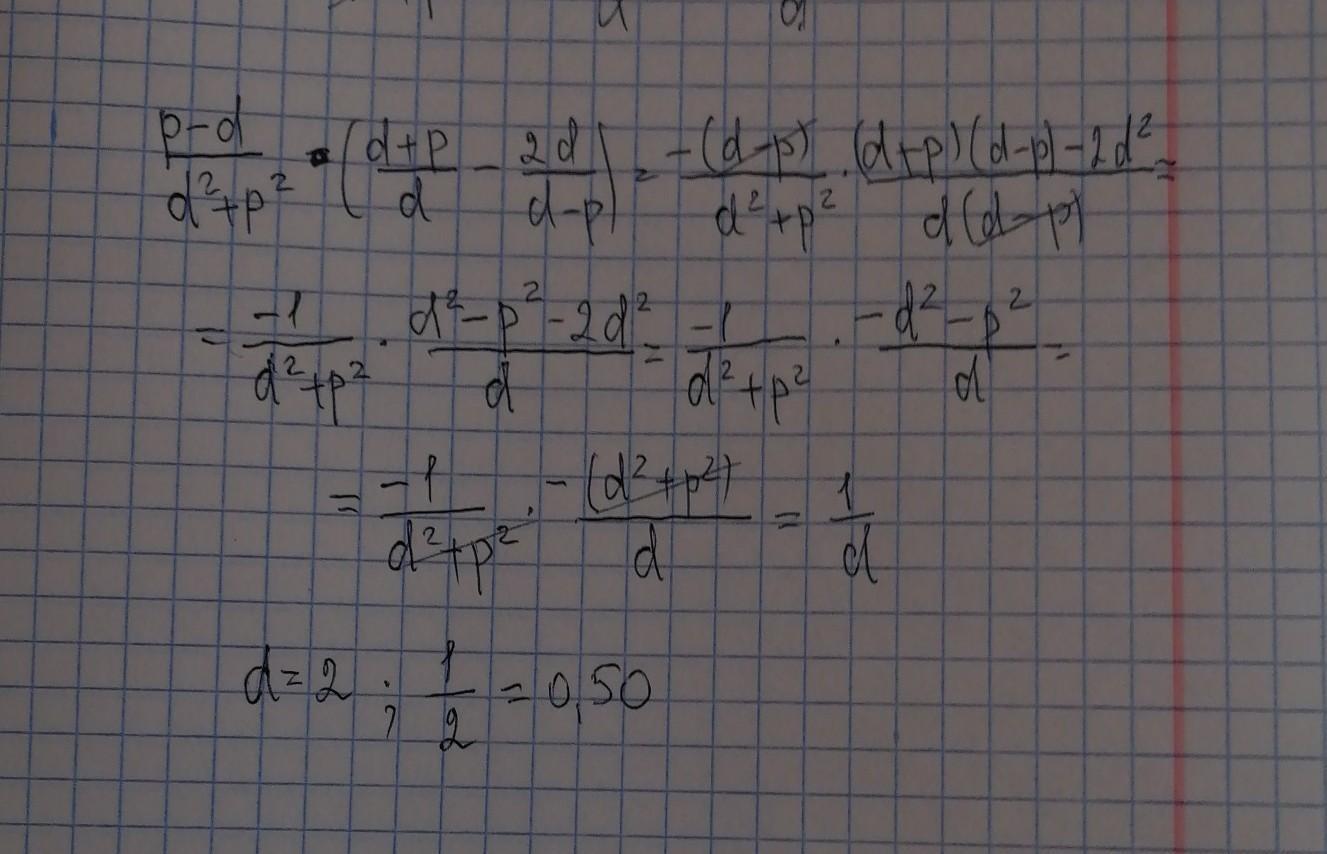 \frac{p-d}{d^2+p^2} \cdot \left(\frac{d+p}{d} - \frac{2d}{d-p}\right) = \frac{-(d-p)}{d^2+p^2} \cdot \frac{(d+p)(d-p)-2d^2}{d(d-p)} =
= \frac{-1}{d^2+p^2} \cdot \frac{d^2-p^2-2d^2}{d} = \frac{-1}{d^2+p^2} \cdot \frac{-d^2-p^2}{d} =
= \frac{-1}{d^2+p^2} \cdot - \frac{(d^2+p^2)}{d} = \frac{1}{d}
d=2 ; \frac{1}{2} = 0,50